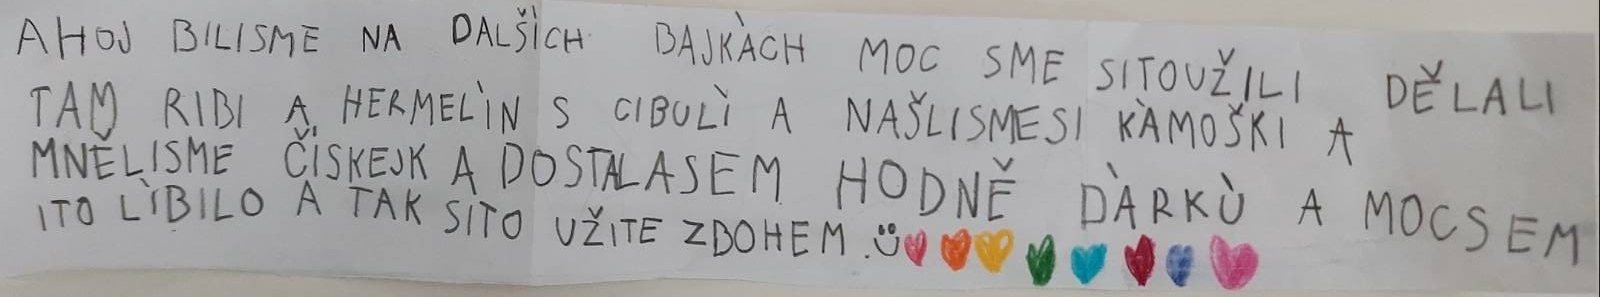 AHOJ BILISME NA DALŠÌCH BAJKÀCH MOC SME SITOUŽILI DĚLALI
TAM RIBI A HERMELÌN S CIBULÌ A NAŠLISMESI KÀMOŠKI A
MNĚLISME ČISKEJK A DOSTALASEM HODNĚ DÀRKÙ A MOCSEM
ITO LÌBILO A TAK SITO UŽITE ZBOHEM.